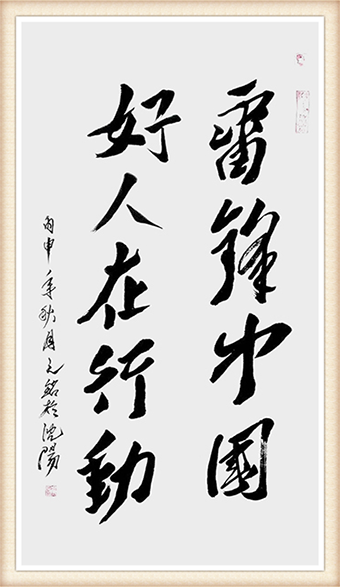 雷鋒中國
好人在行動
丙申年秋月銘於沈陽